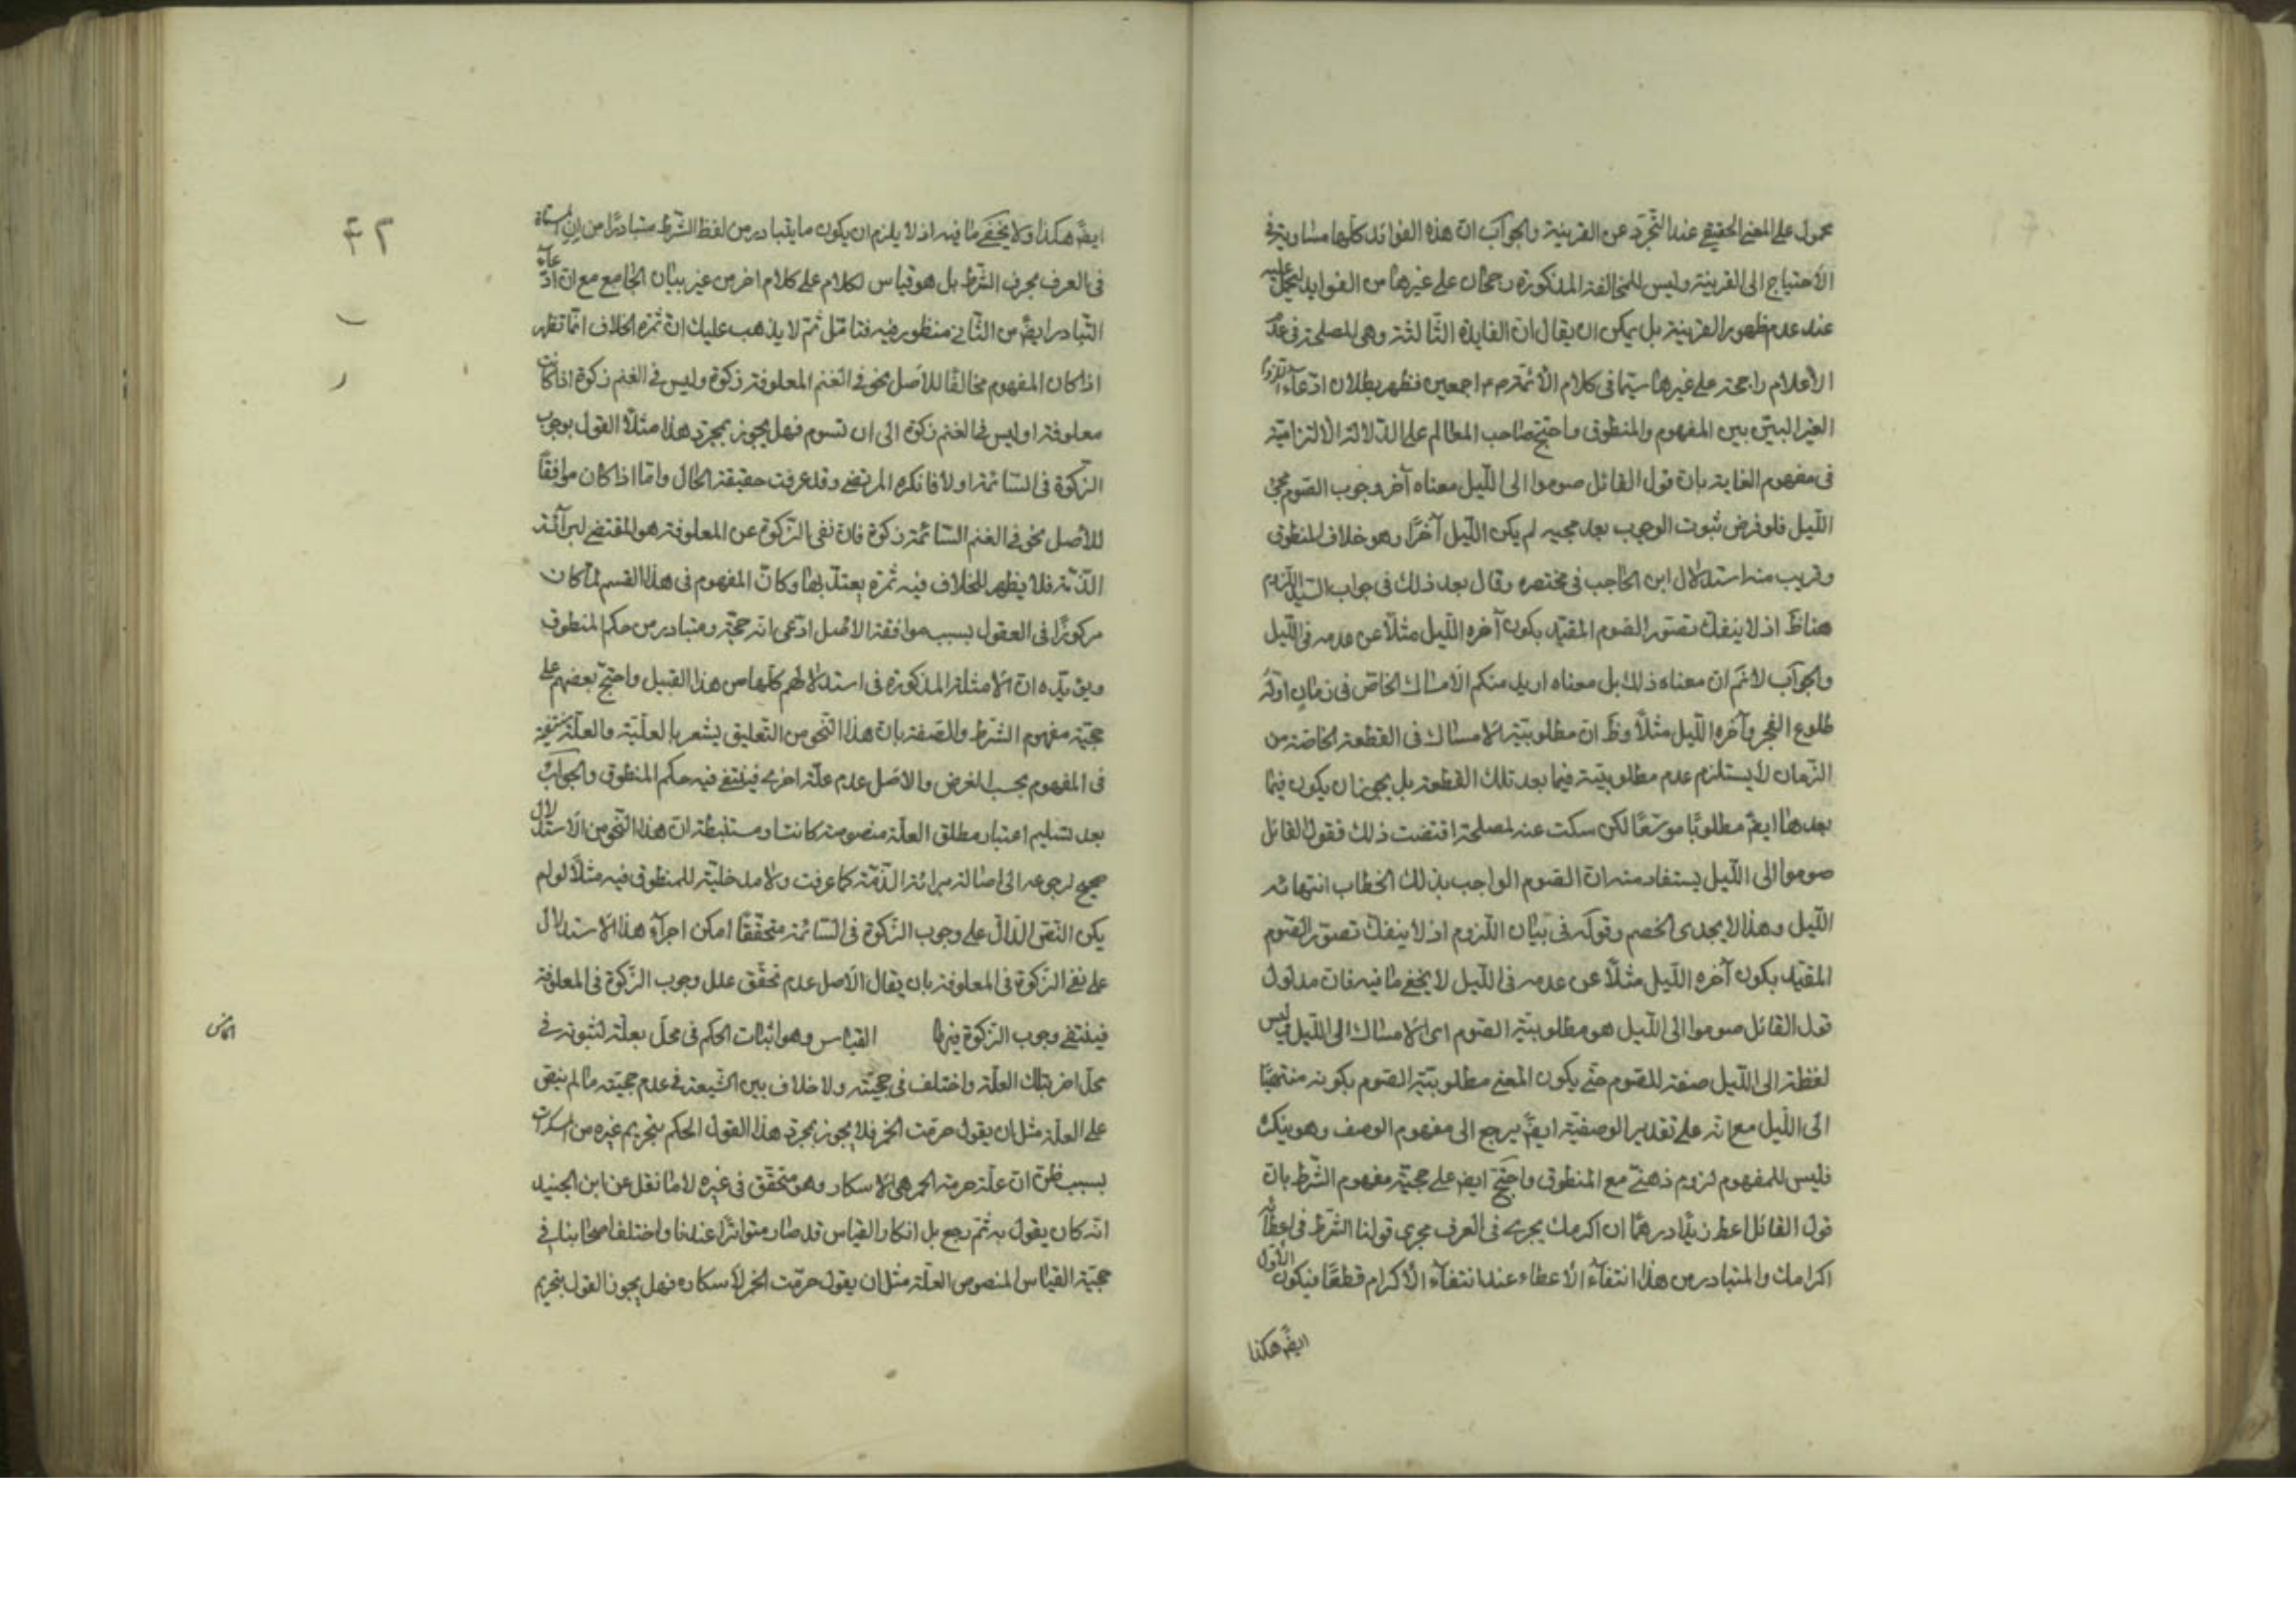 محمول على المعنى الحقيقي عند التجرد عن القرينة والجواب ان هذه الفوائد كلها متساوية في
الاحتياج الى القرينة وليس للمخالفة المذكورة رجحان على غيرها من الفوايد ليحمل عليه
عند عدم ظهور القرينة بل يمكن ان يقال ان الفايدة الثالثة وهي المصلحة في عدم
الأعلام راجحة على غيرها سيما في كلام الأئمة م اجمعين فظهر بطلان ادعاء اللزوم
الغير البين بين المفهوم والمنطوق واحتج صاحب المعالم على الدلالة الالتزامية
في مفهوم الغاية بان قول القائل صوموا الى الليل معناه آخر وجوب الصوم مجئ
الليل فلو فرض ثبوت الوجوب بعد مجيه لم يكن الليل آخرا وهو خلاف المنطوق
وقريب منه استدلال ابن الحاجب في مختصره وقال بعد ذلك في جواب السيد اللزوم
هنا ظ اذ لا ينفك تصور الصوم المقيد بكون آخره الليل مثلا عن عدمه في الليل
والجواب لا نم ان معناه ذلك بل معناه اريد منكم الامساك الخاص في زمان اوله
طلوع الفجر وآخره الليل مثلا وظ ان مطلوبية الامساك في القطعة الخاصة من
الزمان لا يستلزم عدم مطلوبيته فيما بعد تلك القطعة بل يجوز ان يكون فيما
بعدها ايض مطلوبا موسعا لكن سكت عنه لمصلحة اقتضت ذلك فقول القائل
صوموا الى الليل يستفاد منه ان الصوم الواجب بذلك الخطاب انتهائه
الليل وهذا لا يجدى الخصم وقوله في بيان اللزوم اذ لا ينفك تصور الصوم
المقيد بكون آخره الليل مثلا عن عدمه في الليل لا يخفى ما فيه فان مدلول
قول القائل صوموا الى الليل هو مطلوبية الصوم اى الامساك الى الليل وليس
لفظة الى الليل صفة للصوم حتى يكون المعنى مطلوبية الصوم بكونه منتهيا
الى الليل مع انه على تقدير الوصفية ايض يرجع الى مفهوم الوصف وهو ينكره
فليس للمفهوم لزوم ذهني مع المنطوق واحتج ايض على حجية مفهوم الشرط بان
قول القائل اعط زيدا درهما ان اكرمك يجرى في العرف مجرى قولنا الشرط في اعطائه
اكرامك والمتبادر من هذا انتفاء الاعطاء عند انتفاء الأكرام قطعا فيكون الأول
ايض هكذا
۴۲
ايض هكذا ولا يخفى ما فيه اذ لا يلزم ان يكون ما يتبادر من لفظ الشرط متبادرا من ان
في العرف بحرف الشرط بل هو قياس لكلام على كلام اخر من غير بيان الجامع مع ان ادعاء
التبادر ايض من الثاني منظور فيه فتامل ثم لا يذهب عليك ان ثمرة الخلاف انما تظهر
اذا كان المفهوم مخالفا للاصل نحو في الغنم المعلوفة زكوة وليس في الغنم زكوة اذا كانت
معلوفة او ليس في الغنم زكوة الى ان تسوم فهل يجوز بمجرد هذا مثلا القول بوجوب
الزكوة في السائمة او لا فانكره المرتضى وقد عرفت حقيقة الحال واما اذا كان موافقا
للأصل نحو في الغنم السائمة زكوة فان نفى الزكوة عن المعلوفة هو المقتضى لبرائة
الذمة فلا يظهر للخلاف فيه ثمرة يعتد بها وكان المفهوم في هذا القسم لما كان
مركوزا في العقول بسبب موافقة الاصل ادعى انه حجة ومتبادر من حكم المنطوق
ويؤيده ان الامثلة المذكورة في استدلالهم كلها من هذا القبيل واحتج بعضهم على
حجية مفهوم الشرط والصفة بان هذا النحو من التعليق يشعر بالعلية والعلة منتفية
في المفهوم بحسب الفرض والاصل عدم علة اخرى فينتفى فيه حكم المنطوق والجواب
بعد تسليم اعتبار مطلق العلة منصوصة كانت او مستنبطة ان هذا النحو من الاستدلال
صحيح لرجوعه الى اصالة برائة الذمة كما عرفت ولا مدخلية للمنطوق فيه مثلا لو لم
يكن النص الدال على وجوب الزكوة في السائمة متحققا امكن اجراء هذا الاستدلال
على نفى الزكوة في المعلوفة بان يقال الاصل عدم تحقق علل وجوب الزكوة في المعلوفة
فينتفى وجوب الزكوة فيها القياس وهو اثبات الحكم في محل بعلة لثبوته في
محل اخر بتلك العلة واختلف في حجيته ولا خلاف بين الشيعة في عدم حجيته ما لم ينص
على العلة مثل ان يقول حرمت الخمر فلا يجوز بمجرد هذا القول الحكم بتحريم غيره من المسكرات
بسبب ظن ان علة حرمة الخمر هى الاسكار وهو متحقق في غيره لا ما نقل عن ابن الجنيد
انه كان يقول به ثم رجع بل انكار القياس قد صار متواترا عندنا واختلف اصحابنا في
حجية القياس المنصوص العلة مثل ان يقول حرمت الخمر لاسكاره فهل يجوز القول بتحريم